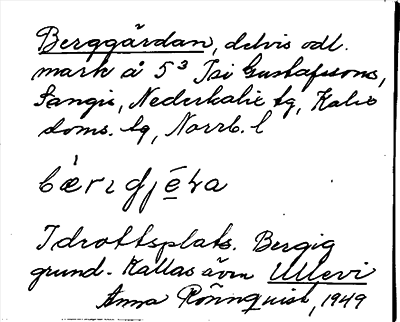 Berggärdan, delvis odl.
mark å 5³ Isi Gustafssons,
Sangis, Nederkalix tg, Kalix
doms. tg, Norrb. l
Idrottsplats. Bergig
grund. Kallas även Ullevi
Anna Rönnquist, 1949